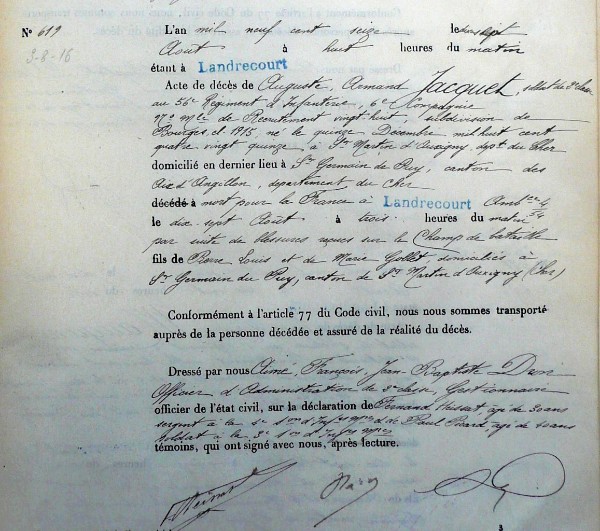 N° 619
L'an mil neuf cent seize le dix sept
9-8-16
Août à huit heures du matin
étant à Landrecourt
Acte de décès de Auguste, Armand Jacquet, soldat de 2e classe
au 56e Régiment d'Infanterie, 6e Compagnie
N° Mle de Recrutement vingt-huit, subdivision de
Bourges, cl. 1915, né le quinze Décembre mil huit cent
quatre vingt quinze, à St Martin d'Auxigny, dépt du Cher
domicilié en dernier lieu à St Germain du Puy, canton des
Aix d'Angillon, département du Cher
décédé à mort pour la France à Landrecourt Ambce 4/54
le dix-sept Août à trois heures du matin
par suite de blessures reçues sur le Champ de bataille
fils de Pierre Louis et de Marie Gollet domiciliés à
St Germain du Puy, canton de St Martin d'Auxigny (Cher)
Conformément à l'article 77 du Code civil, nous nous sommes transporté
auprès de la personne décédée et assuré de la réalité du décès.
Dressé par nous Aimé François Jean Baptiste
Officier d'Administration de 2e classe, Gestionnaire
officier de l'état civil, sur la déclaration de Fernand agé de 30 ans
sergent à la et de Paul agé de ans
soldat à la
témoins, qui ont signé avec nous, après lecture.
à